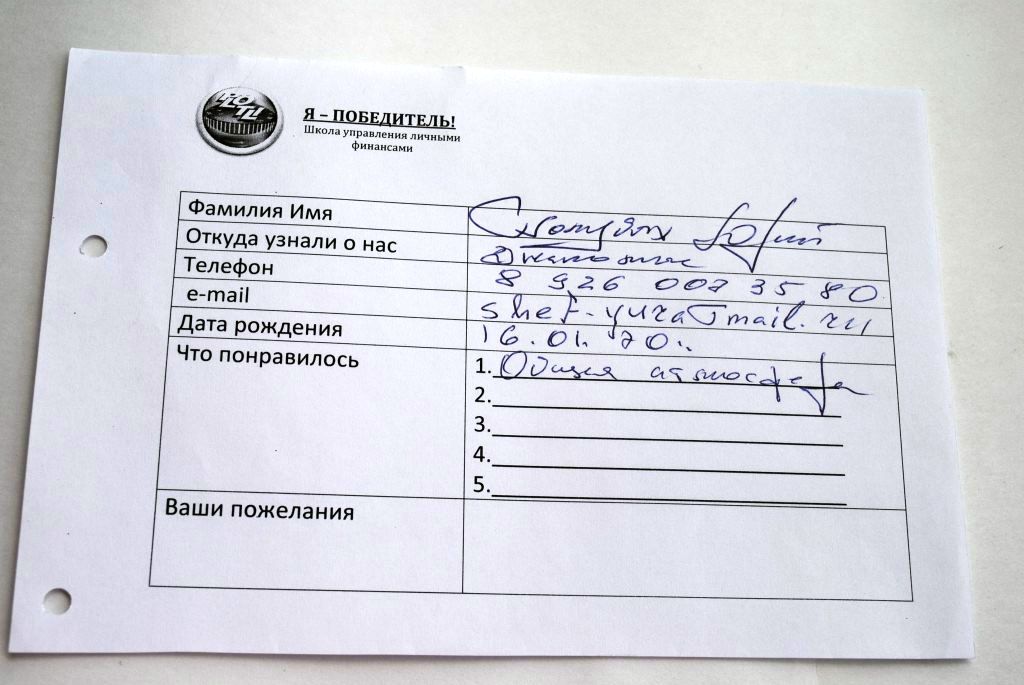 Я – ПОБЕДИТЕЛЬ!
Школа управления личными
финансами
Фамилия Имя Юрий
Откуда узнали о нас
Телефон 8 926 007 35 80
e-mail shef-yura@mail.ru
Дата рождения 16.01.70г.
Что понравилось
1. Общая атмосфера
2.
3.
4.
5.
Ваши пожелания